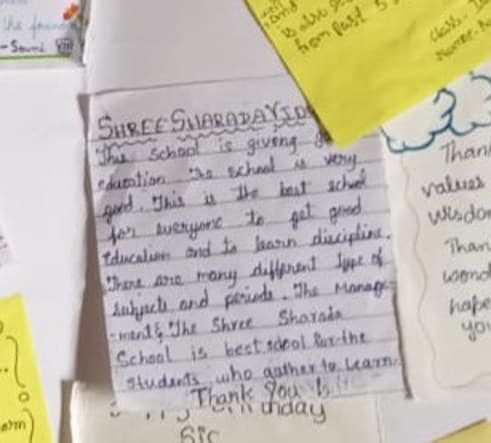 the
- Sound VIII
is also
from past 5
class.
Name.
SHREE SHARADA VID
This school is giving
education. The school is very
good. This is the best school
for everyone to get good
Education and to learn discipline.
There are many different type of
subjects and periods. The Manage
-ment & The Shree Sharada
School is best school for the
students who gather to learn.
Thank You
day
Sir
Than
values
Wisdo
Than
wond
hope
you